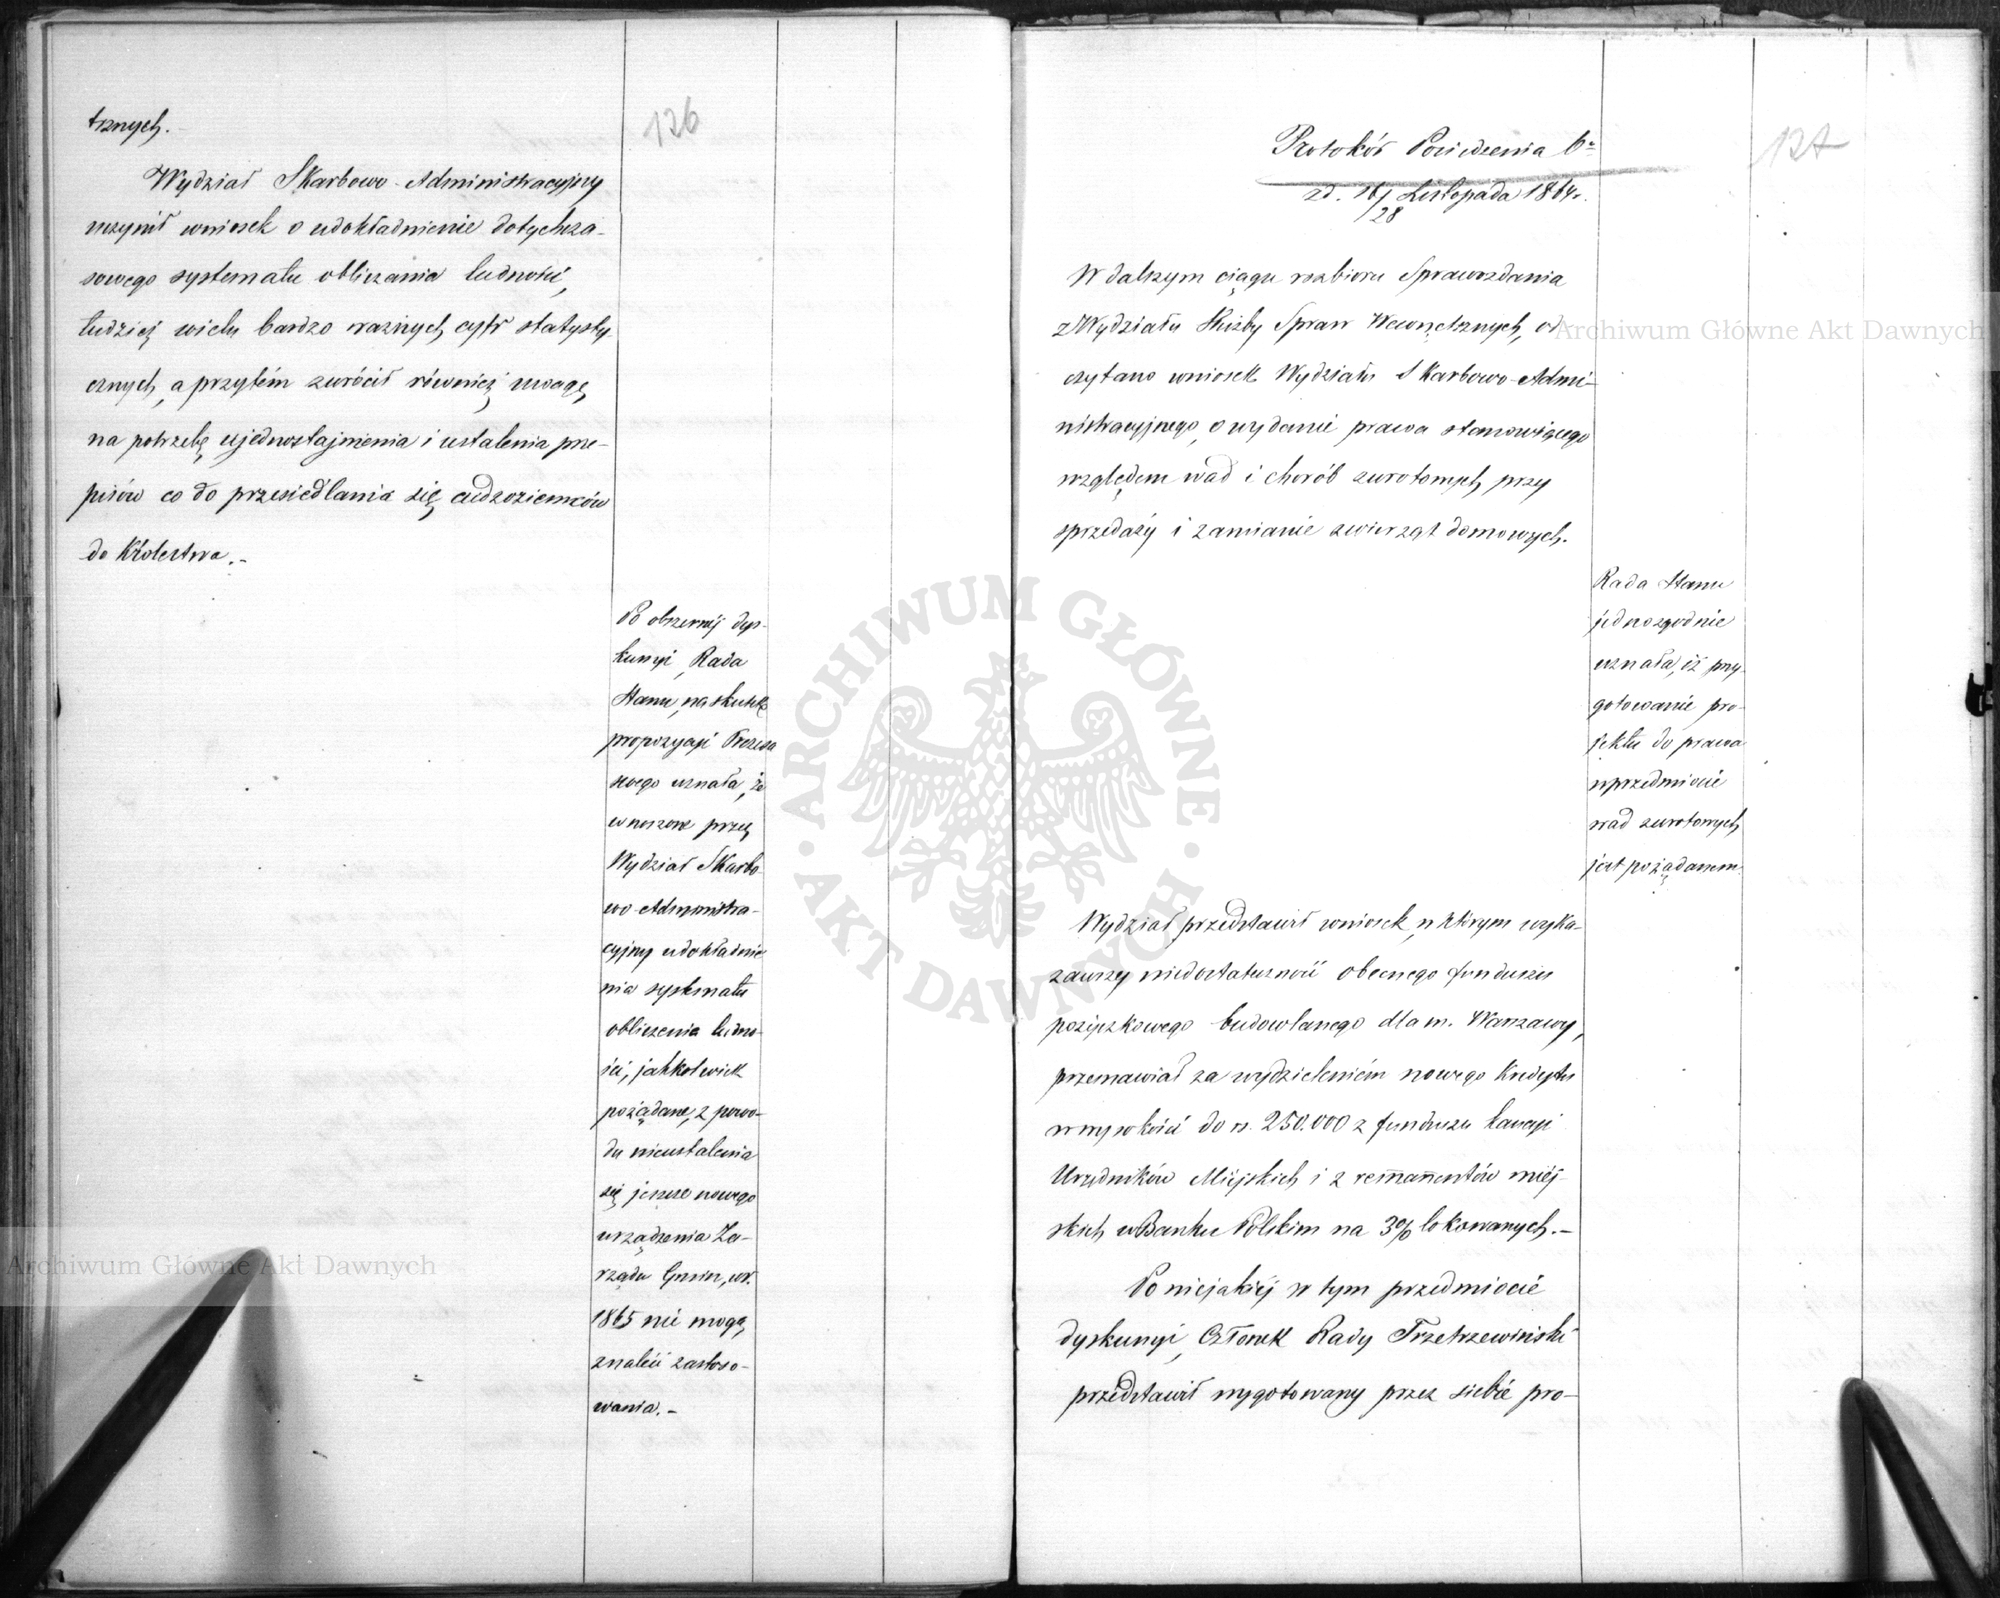 126
trznych.
Wydział Skarbowo-Administracyjny
uczynił wniosek o udokładnienie dotychcza-
sowego systematu obliczania ludności,
tudzież wielu bardzo ważnych cyfr statysty-
cznych, a przytém zwrócił również uwagę,
na potrzebę ujednostajnienia i ustalenia prze-
pisów co do przesiedlania się cudzoziemców
do Królestwa.-
Po obszernéj dys-
kussyi, Rada
Stanu, na skutek
propozycyi Prezesa
swego uznała, że
wnoszone przez
Wydział Skarbo-
wo-Administra-
cyjny udokładnie
nia systematu
obliczenia ludno-
ści, jakkolwiek
pożądane, z powo-
du nieustalenia
się jeszcze nowego
urządzenia Za-
rządu Gmin, w r.
1865 nie mogą
znaleść zastoso-
wania.-
127
Protokół Posiedzenia 6o
z d. 16/28 Listopada 1864 r.
W dalszym ciągu rozbioru Sprawozdania
z Wydziału Służby Spraw Wewnętrznych, od
czytano wniosek Wydziału Skarbowo-Admi-
nistracyjnego, o wydanie prawa stanowiącego
względem wad i chorób zwrotnych, przy
sprzedaży i zamianie zwierząt domowych.
Rada Stanu
jednozgodnie
uznała, iż przy-
gotowanie pro-
jektu do prawa
w przedmiocie
wad zwrotnych,
jest pożądanem.
Wydział przedstawił wniosek, w którym wyka-
zawszy niedostateczność obecnego funduszu
pożyczkowego budowlanego dla m. Warszawy,
przemawiał za wydzieleniém nowego kredytu
w wysokości do rs. 250.000 z funduszu kaucyi
Urzędników Miejskich i z remanentów miej-
skich w Banku Polskim na 3% lokowanych.-
Po niejakiéj w tym przedmiocie
dyskussyi, Członek Rady Trzetrzewiński
przedstawił wygotowany przez siebie pro-
Archiwum Główne Akt Dawnych
Archiwum Główne Akt Dawnych
ARCHIWUM GŁÓWNE · AKT DAWNYCH ·